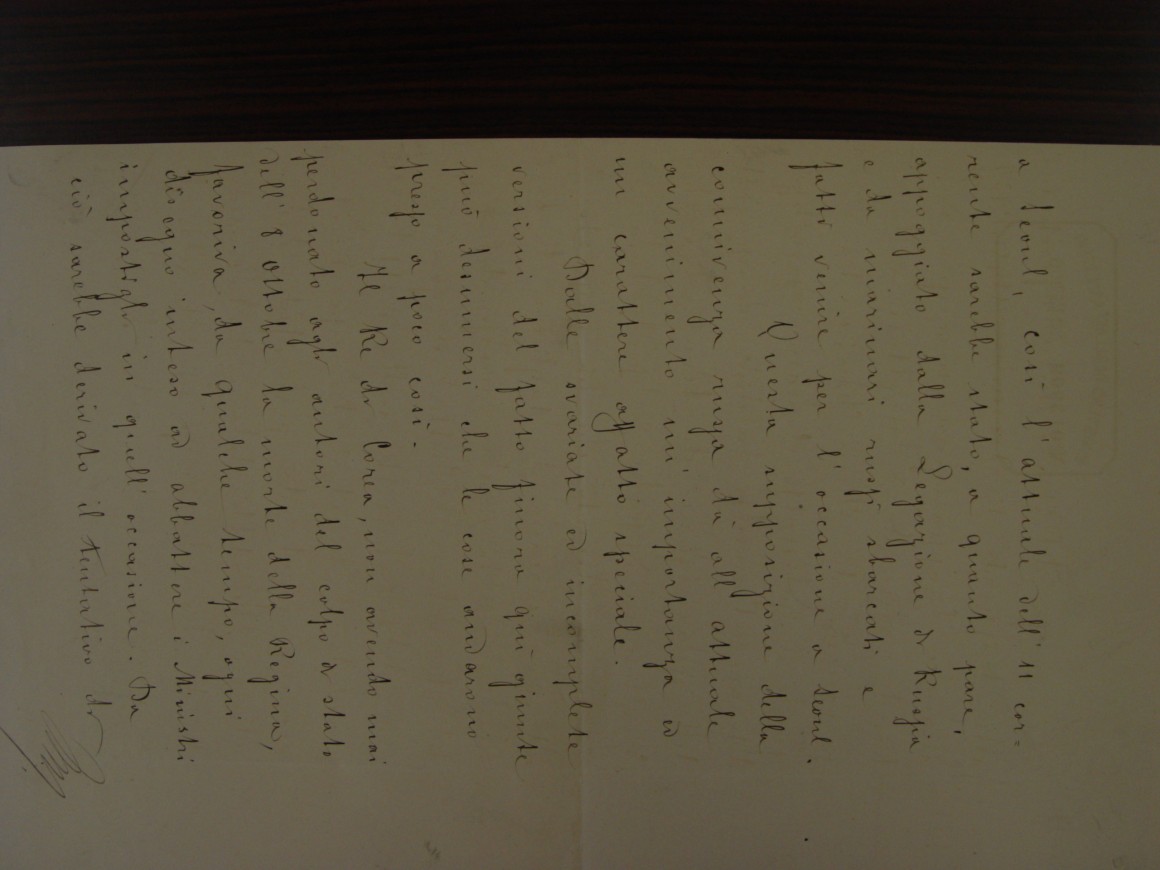 a Seoul, così l'attuale dell'11 cor=
rente sarebbe stato, a quanto pare,
appoggiato dalla Legazione di Russia
e da marinari russi sbarcati e
fatti venire per l'occasione a Seoul.
Questa supposizione della
connivenza russa dà all'attuale
avvenimento un'importanza ed
un carattere affatto speciale.
Dalle svariate ed incomplete
versioni del fatto finora qui giunte
può desumersi che le cose andarono
presso a poco così.
Il Re di Corea, non avendo mai
perdonato agli autori del colpo di stato
dell'8 Ottobre la morte della Regina,
favoriva, da qualche tempo, ogni
disegno inteso ad abbattere i Ministri
impostigli in quell'occasione. Da
ciò sarebbe derivato il tentativo di